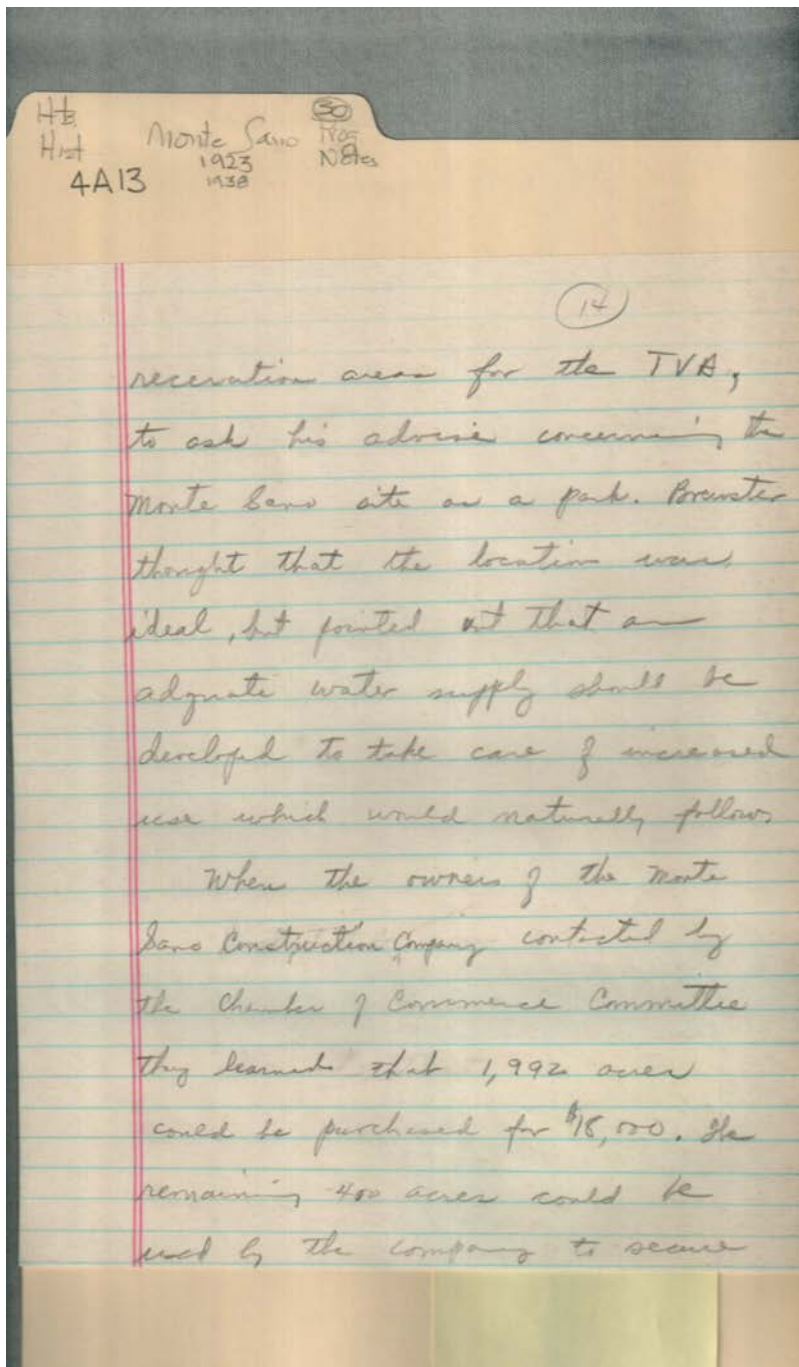 Hts
Hist
Monte Sano
1923
1938
30
Prog
Notes
4A13
14
receration areas for the TVA,
to ask his advise concerning the
Monte Sano site as a park. Brewster
thought that the location was
ideal, but pointed out that an
adquate water supply should be
developed to take care of increased
use which would naturally follow.
When the owners of the Monte
Sano Construction Company contacted by
the Chamber of Commerce Committee
they learned that 1,992 acres
could be purchased for $18,000. The
remaining 400 acres could be
used by the company to secure